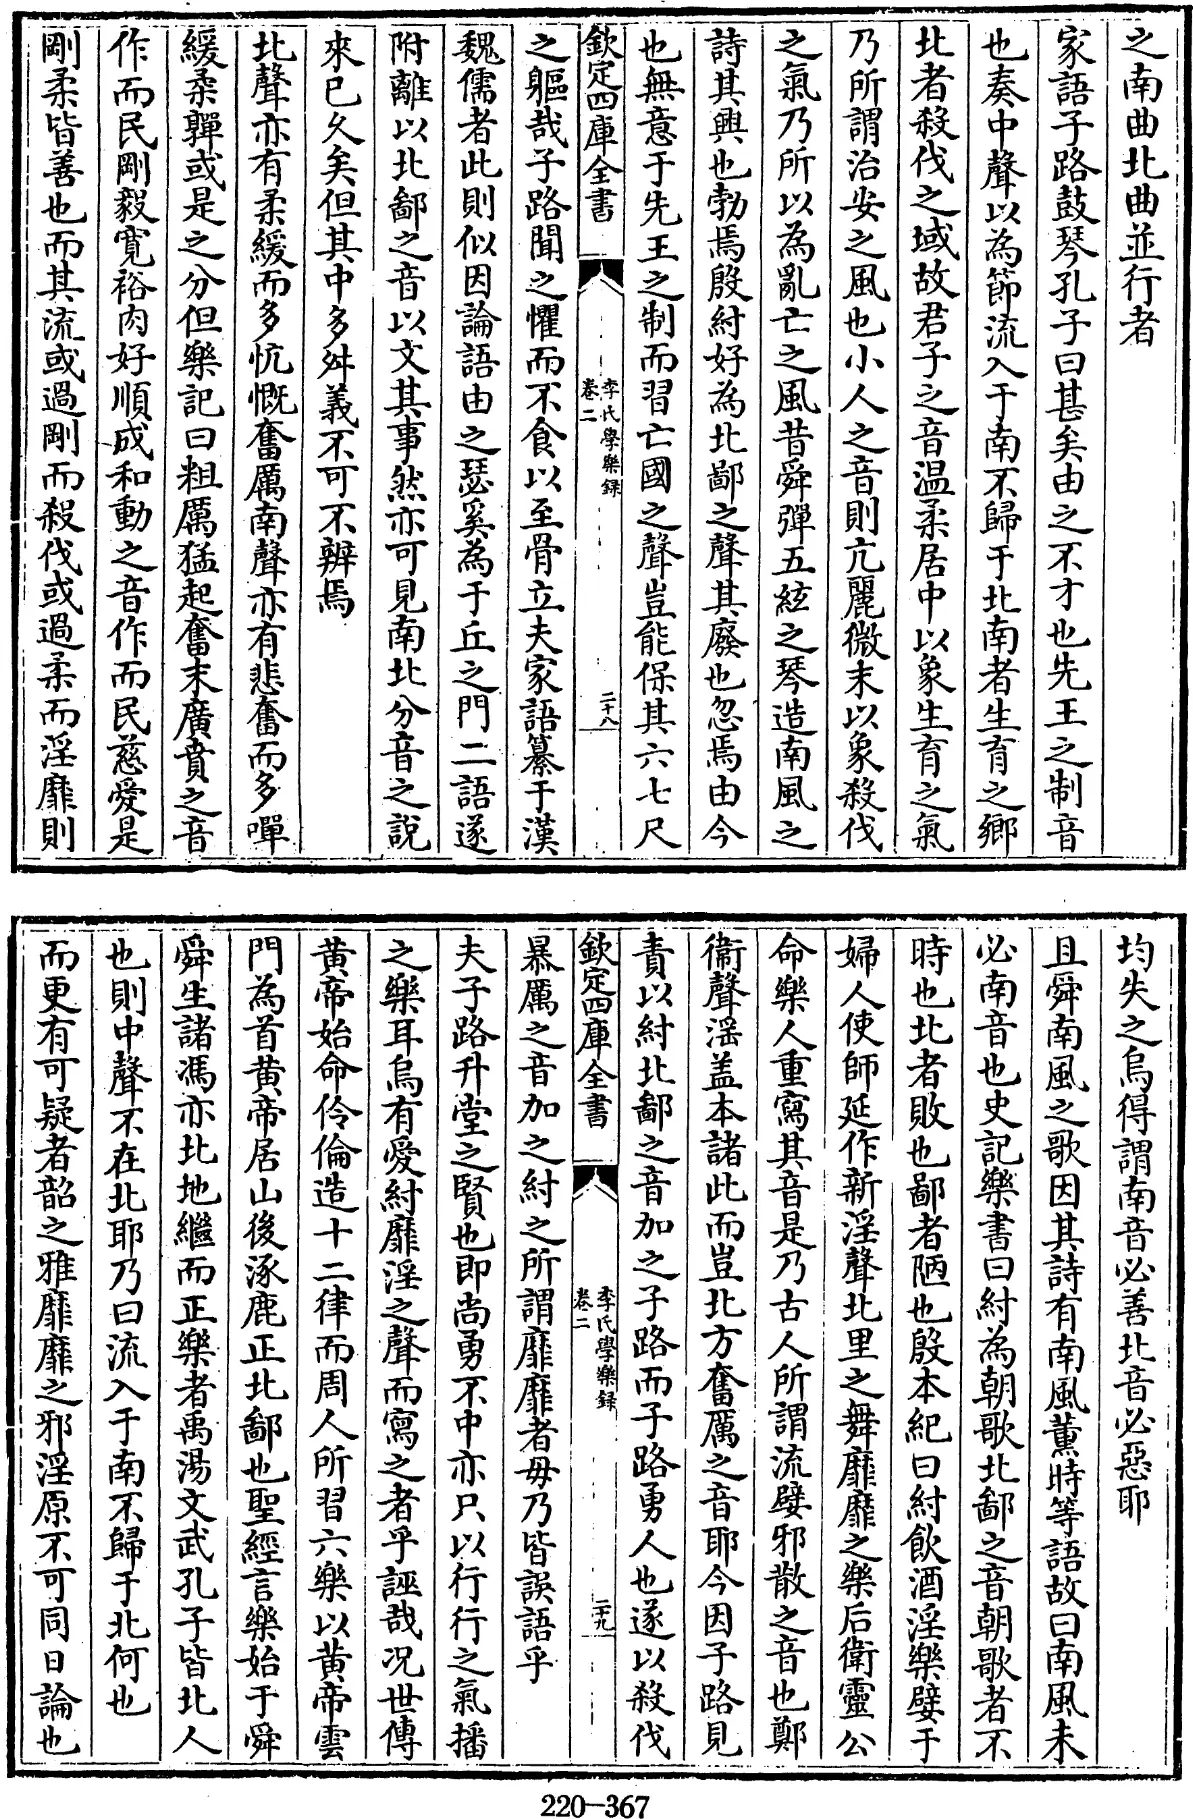 之南曲北曲並行者
家語子路鼓琴孔子曰甚矣由之不才也先王之制音
也奏中聲以為節流入于南不歸于北南者生育之鄉
北者殺伐之域故君子之音温柔居中以象生育之氣
乃所謂治安之風也小人之音則亢麗微末以象殺伐
之氣乃所以為亂亡之風昔舜彈五絃之琴造南風之
詩其興也勃焉殷紂好為北鄙之聲其廢也忽焉由今
也無意于先王之制而習亡國之聲豈能保其六七尺
欽定四庫全書
李氏學樂録
卷二
二十八
之軀哉子路聞之懼而不食以至骨立夫家語纂于漢
魏儒者此則似因論語由之瑟奚為于丘之門二語遂
附離以北鄙之音以文其事然亦可見南北分音之說
來已久矣但其中多舛義不可不辨焉
北聲亦有柔緩而多忼慨奮厲南聲亦有悲奮而多嘽
緩柔嚲或是之分但樂記曰粗厲猛起奮末廣賁之音
作而民剛毅寛裕肉好順成和動之音作而民慈愛是
剛柔皆善也而其流或過剛而殺伐或過柔而淫靡則
均失之烏得謂南音必善北音必惡耶
且舜南風之歌因其詩有南風薰時等語故曰南風未
必南音也史記樂書曰紂為朝歌北鄙之音朝歌者不
時也北者敗也鄙者陋也殷本紀曰紂飲酒淫樂嬖于
婦人使師延作新淫聲北里之舞靡靡之樂后衛靈公
命樂人重寫其音是乃古人所謂流嬖邪散之音也鄭
衞聲滛盖本諸此而豈北方奮厲之音耶今因子路見
責以紂北鄙之音加之子路而子路勇人也遂以殺伐
欽定四庫全書
李氏學樂録
卷二
二十九
暴厲之音加之紂之所謂靡靡者毋乃皆誤語乎
夫子路升堂之賢也即尚勇不中亦只以行行之氣播
之樂耳烏有愛紂靡淫之聲而寫之者乎誣哉况世傳
黄帝始命伶倫造十二律而周人所習六樂以黄帝雲
門為首黄帝居山後涿鹿正北鄙也聖經言樂始于舜
舜生諸馮亦北地繼而正樂者禹湯文武孔子皆北人
也則中聲不在北耶乃曰流入于南不歸于北何也
而更有可疑者韶之雅靡靡之邪淫原不可同日論也
220-367